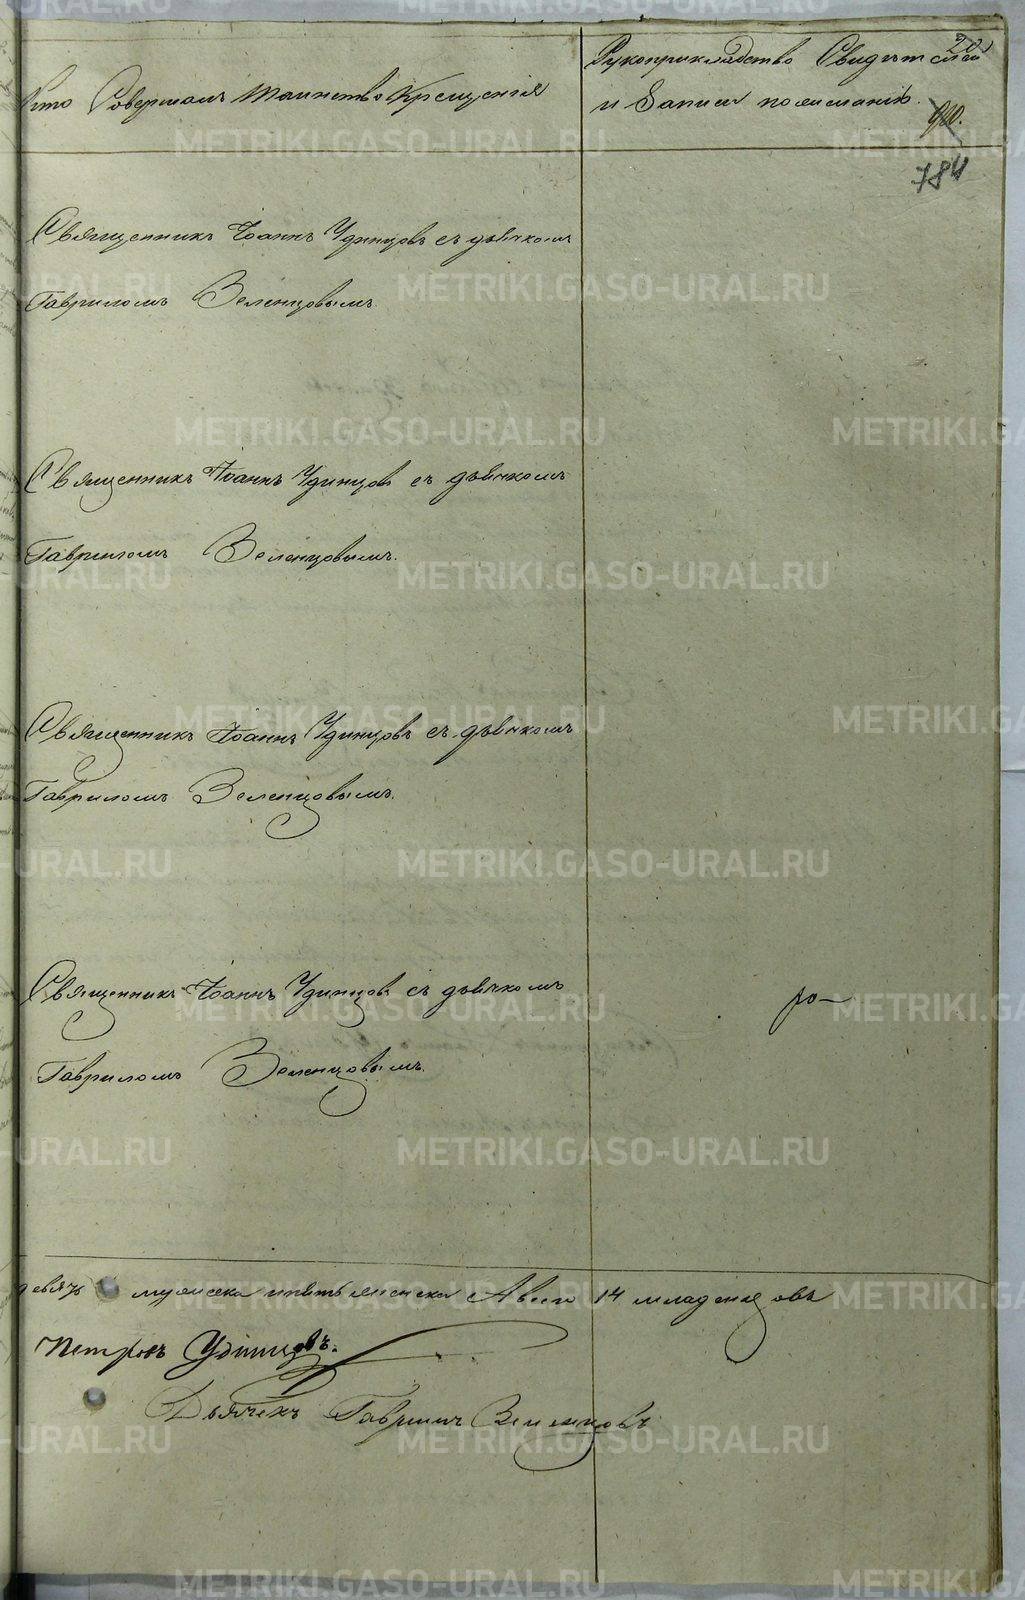 Кто Совершалъ Таинство Крещенія
Рукоприкладство Свидѣтелей
и Записи по желанію.
784
Священникъ Іоаннъ Удинцовъ съ дьячкомъ
Гавриломъ Зеленцовымъ.
Священникъ Іоаннъ Удинцовъ съ дьячкомъ
Гавриломъ Зеленцовымъ.
Священникъ Іоаннъ Удинцовъ съ дьячкомъ
Гавриломъ Зеленцовымъ.
Священникъ Іоаннъ Удинцовъ съ дьячкомъ
Гавриломъ Зеленцовымъ.
девять мужеска пять женска Всего 14 младенцовъ
Петровъ Удинцовъ.
Дьячекъ Гаврилъ Зеленцовъ
METRIKI.GASO-URAL.RU